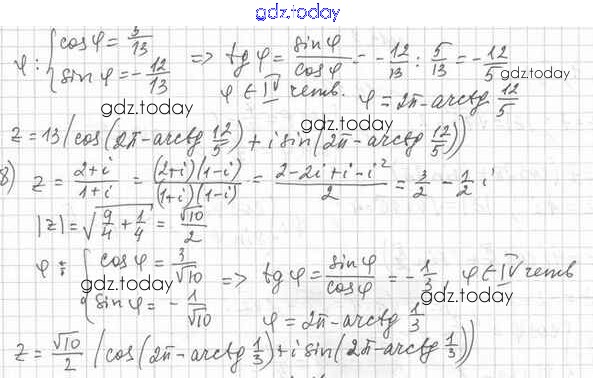 gdz.today
φ: { cos φ = 5/13
sin φ = -12/13 => tg φ = sin φ / cos φ = -12/13 : 5/13 = -12/5
gdz.today
φ ∈ IV четв. φ = 2π - arctg 12/5
gdz.today
z = 13 (cos(2π - arctg 12/5) + i sin(2π - arctg 12/5))
8) z = 2+i / 1+i = (2+i)(1-i) / (1+i)(1-i) = 2-2i+i-i² / 2 = 3/2 - 1/2 i
gdz.today
|z| = √(9/4 + 1/4) = √10/2
gdz.today
φ: { cos φ = 3/√10
sin φ = -1/√10 => tg φ = sin φ / cos φ = -1/3, φ ∈ IV четв
gdz.today
gdz.today
φ = 2π - arctg 1/3
z = √10/2 (cos(2π - arctg 1/3) + i sin(2π - arctg 1/3))
gdz.today